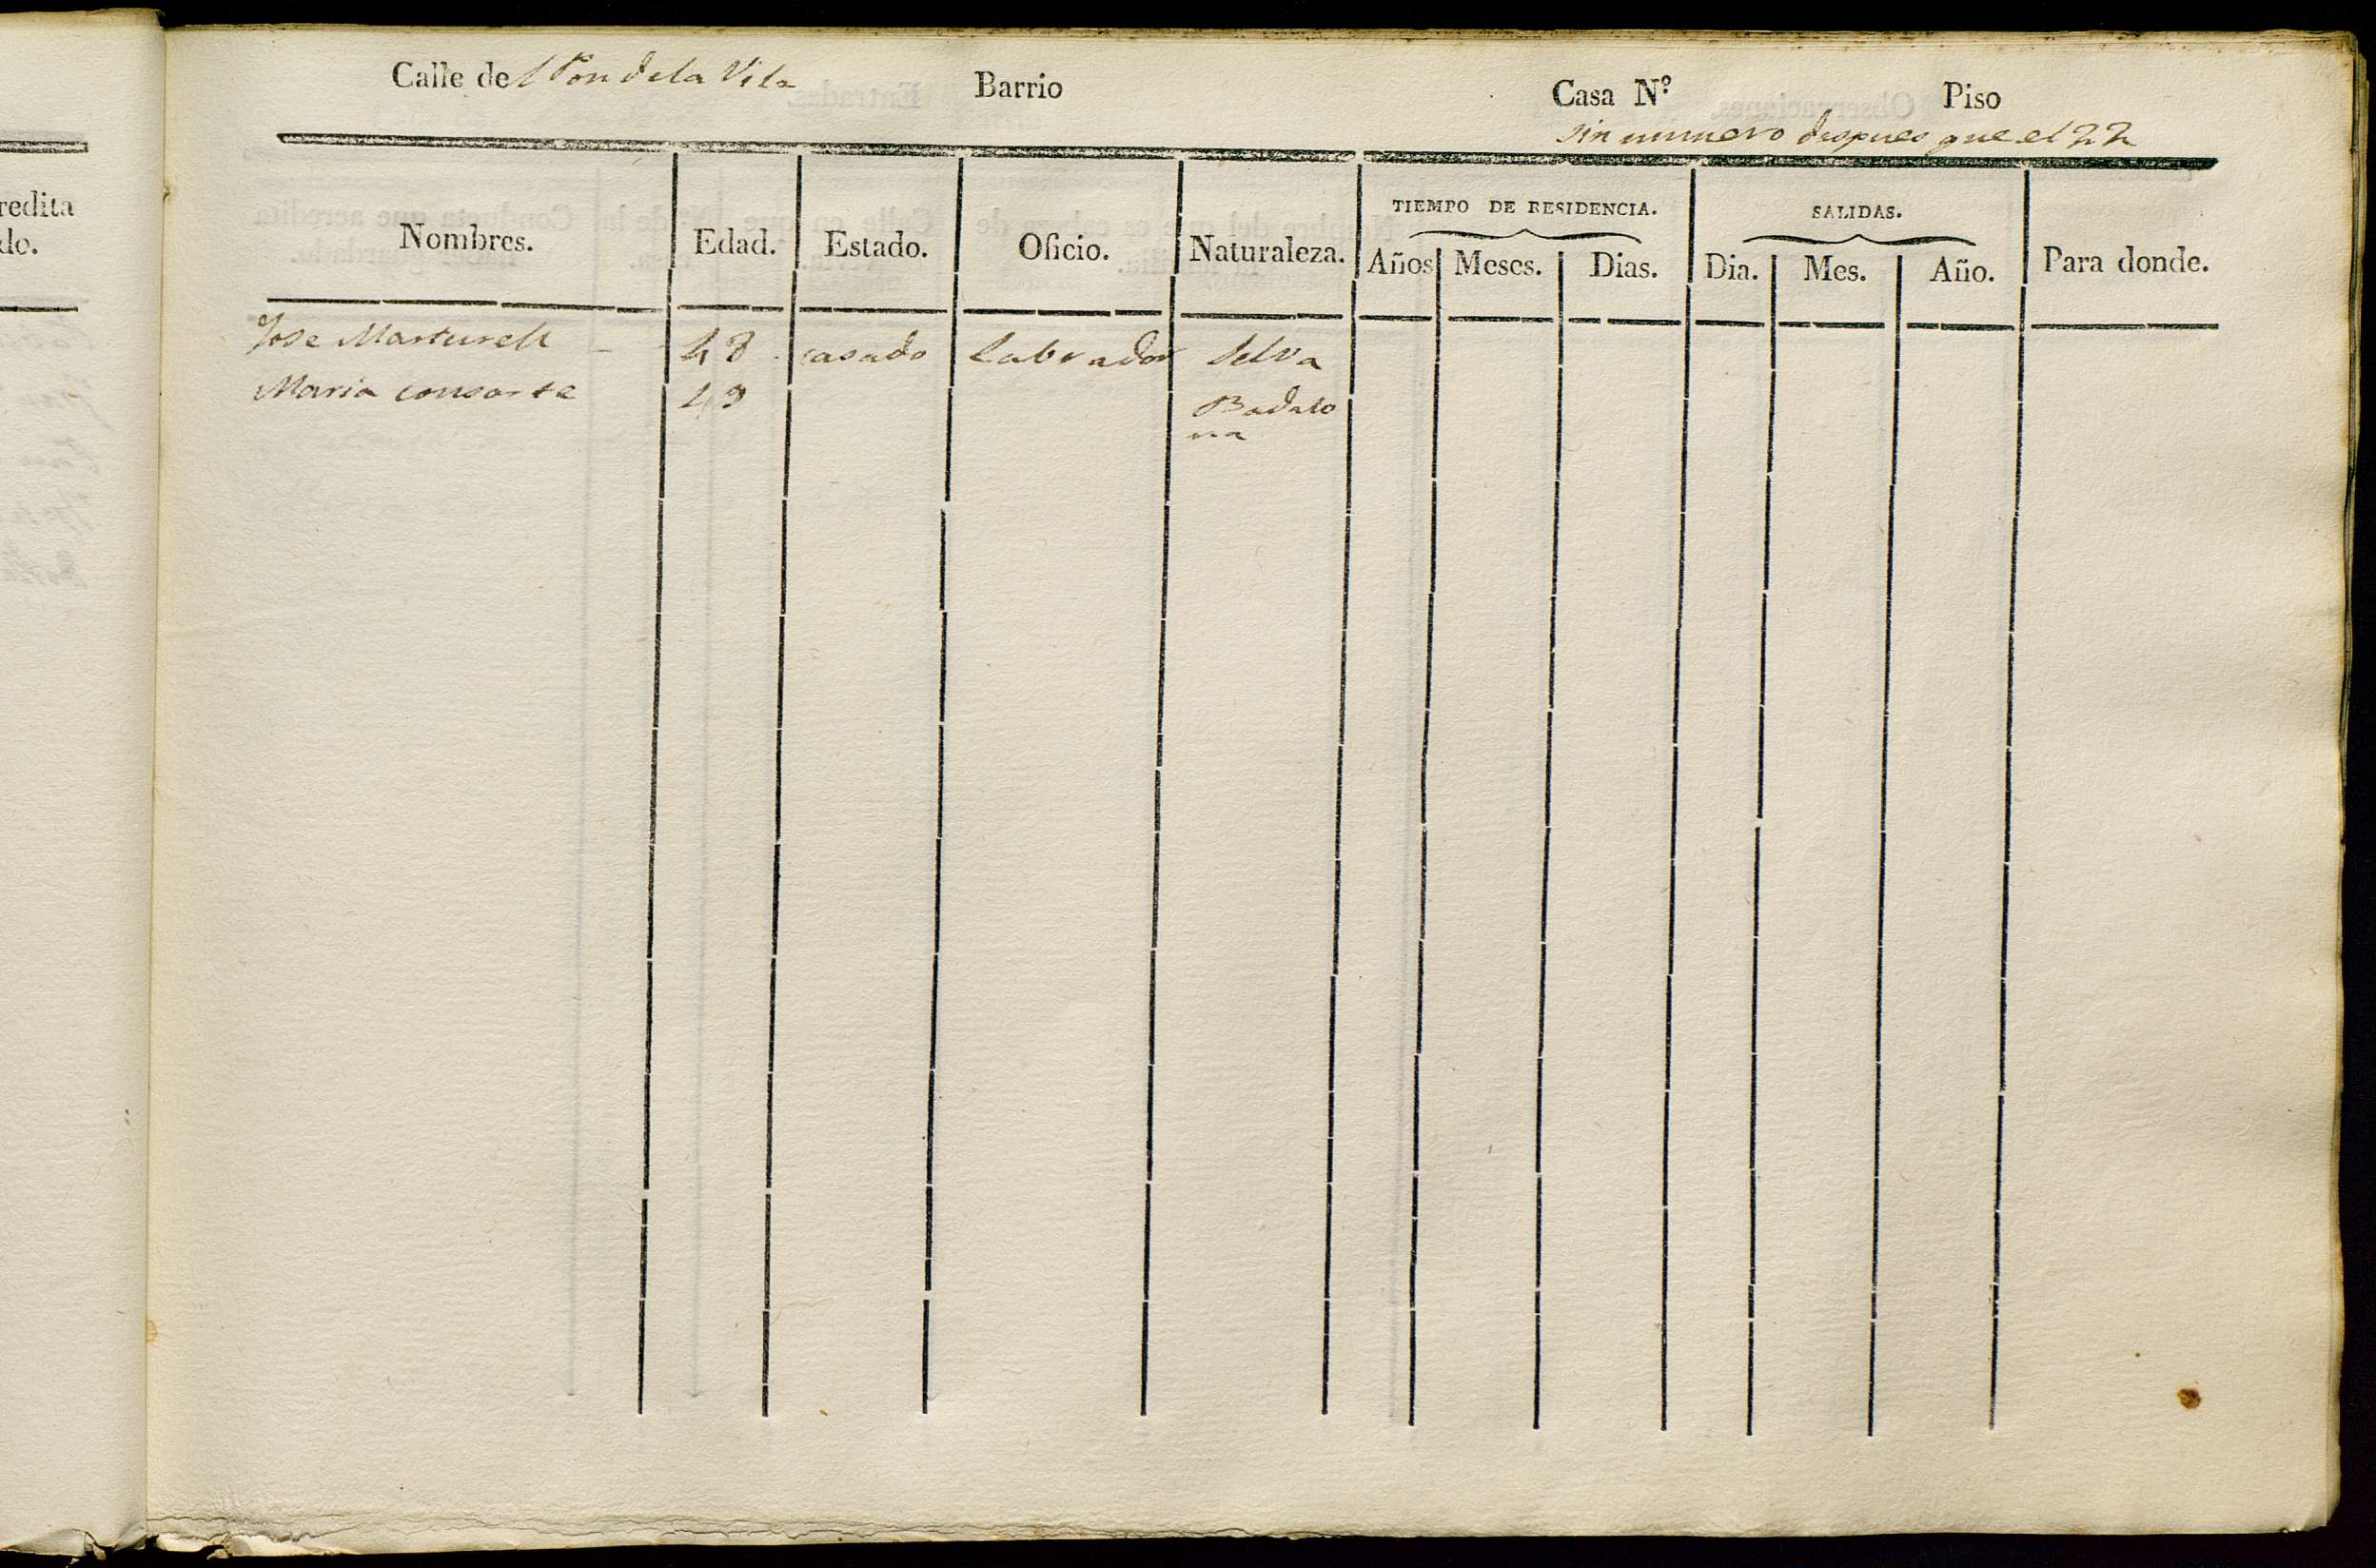 redita
do.
Calle del Pou de la Vila Barrio Casa N.º Piso
sin numero despues que el 22
Nombres. Edad. Estado. Oficio. Naturaleza. TIEMPO DE RESIDENCIA. SALIDAS. Para donde.
Años Meses. Dias. Dia. Mes. Año.
Jose Marturell 48 casado Labrador Selva
Maria consorte 49 Badalo
na